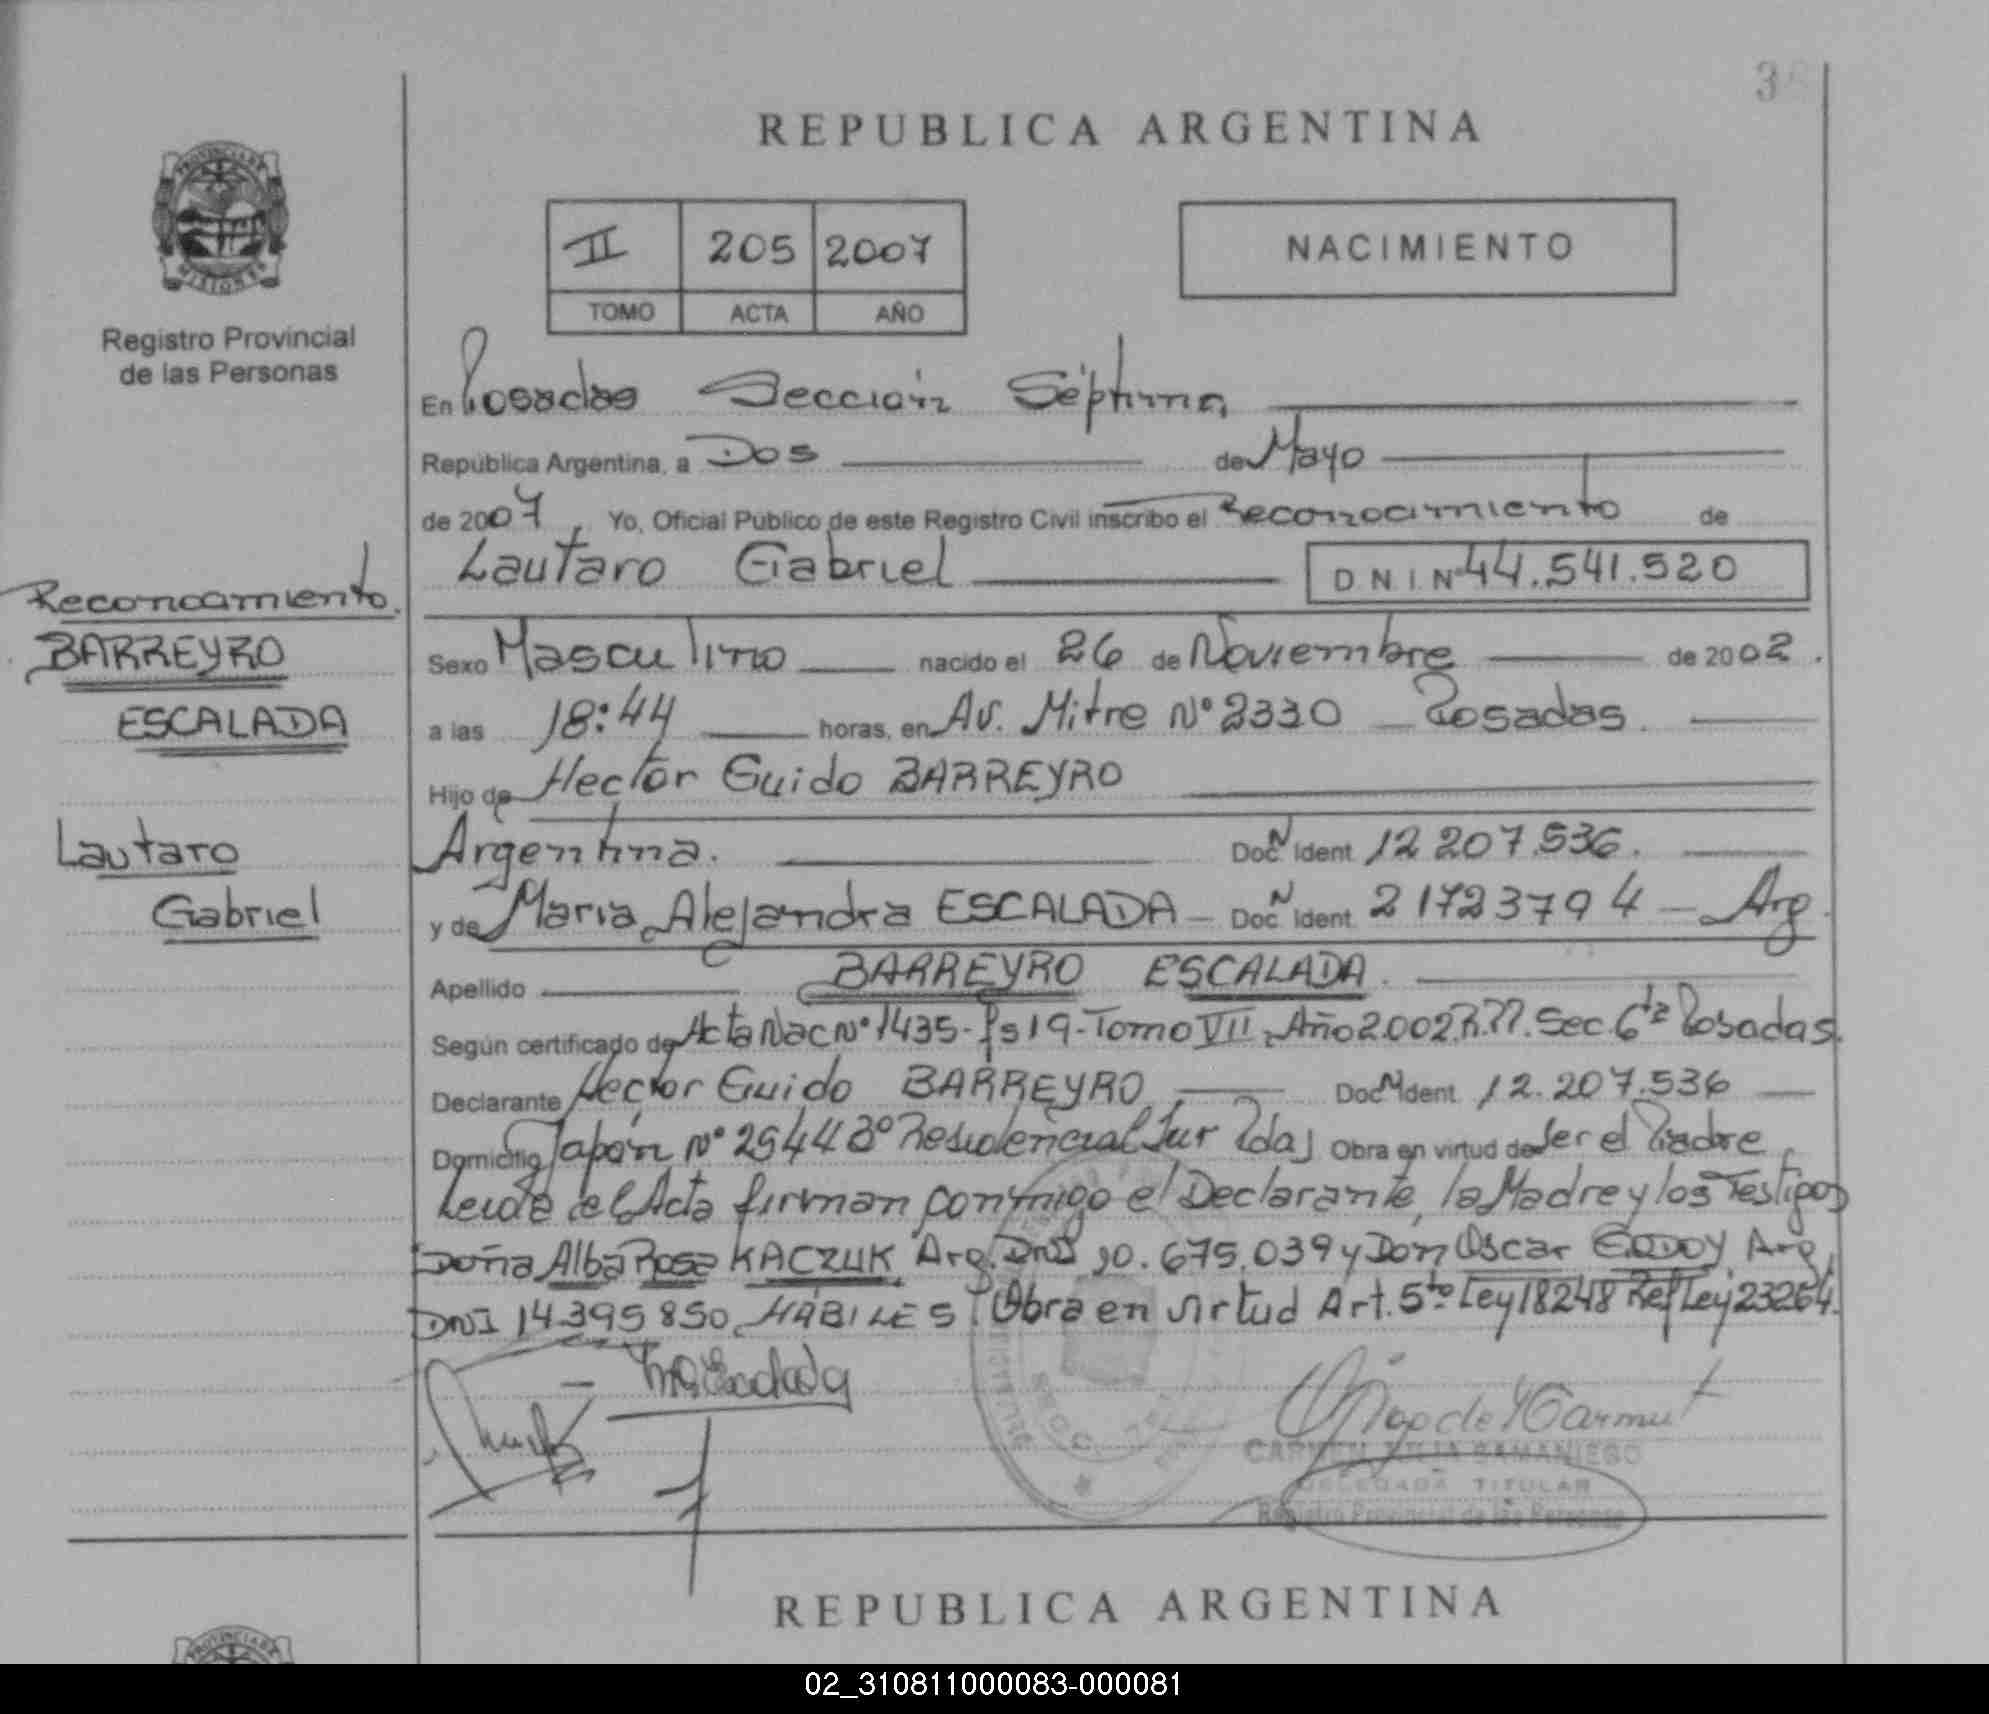 REPUBLICA ARGENTINA
PROVINCIA DE
MISIONES
Registro Provincial
de las Personas
II 205 2007
TOMO ACTA AÑO
NACIMIENTO
En Posadas Sección Séptima
República Argentina, a Dos de Mayo
de 2007, Yo, Oficial Público de este Registro Civil inscribo el Reconocimiento de
Lautaro Gabriel D.N.I. Nº 44.541.520
Reconocimiento.
BARREYRO
ESCALADA
Lautaro
Gabriel
Sexo Masculino nacido el 26 de Noviembre de 2002.
a las 18:44 horas, en Av. Mitre Nº 2330 Posadas.
Hijo de Hector Guido BARREYRO
Argentina. Doc N Ident 12 207.536.
y de Maria Alejandra ESCALADA - Doc N Ident 21723794 - Arg.
Apellido BARREYRO ESCALADA.
Según certificado de Acta Nac Nº 1435- fs 19- Tomo VII Año 2.002 Sec. 6ta Posadas.
Declarante Hector Guido BARREYRO Doc N Ident 12.207.536
Domicilio Japón Nº 2544 Bº Residencial Sur Pdas Obra en virtud de Ser el Padre,
Leida el Acta firman conmigo el Declarante, la Madre y los Testigos
Doña Alba Rosa KACZUK Arg. DNI 10.675.039 y Don Oscar GODOY Arg.
DNI 14395850 HABILES. Obra en virtud Art. 5to Ley 18248 Ref Ley 23264.
CARMEN JULIA SAMANIEGO
DELEGADA TITULAR
Registro Provincial de las Personas
REPUBLICA ARGENTINA
PROVINCIA DE
02_310811000083-000081